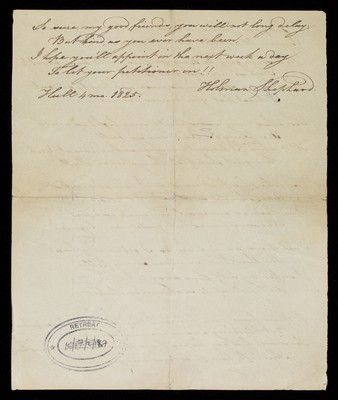 So sure, my good friends, you will not long delay
But kind as you ever have been
I hope you'll appoint in the next week a day
To let your petitioner in!!
Hull 4 mo. 1825. Shephard.
RETREAT